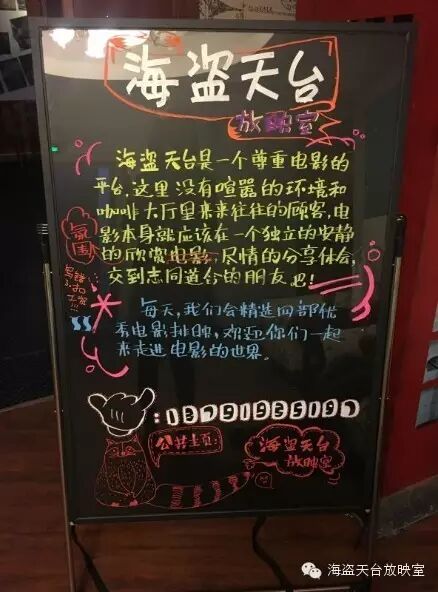 海盗天台
放映室
海盗天台是一个尊重电影的
平台,这里没有喧嚣的环境和
咖啡大厅里来来往往的顾客,电
影本身就应该在一个独立的安静
的欣赏电影,尽情的分享体会,
交到志同道合的朋友吧!
氛围
每天,我们会精选两部优
秀电影排映,欢迎你们一起
来走进电影的世界。
公共主页:
海盗天台
放映室
海盗天台放映室